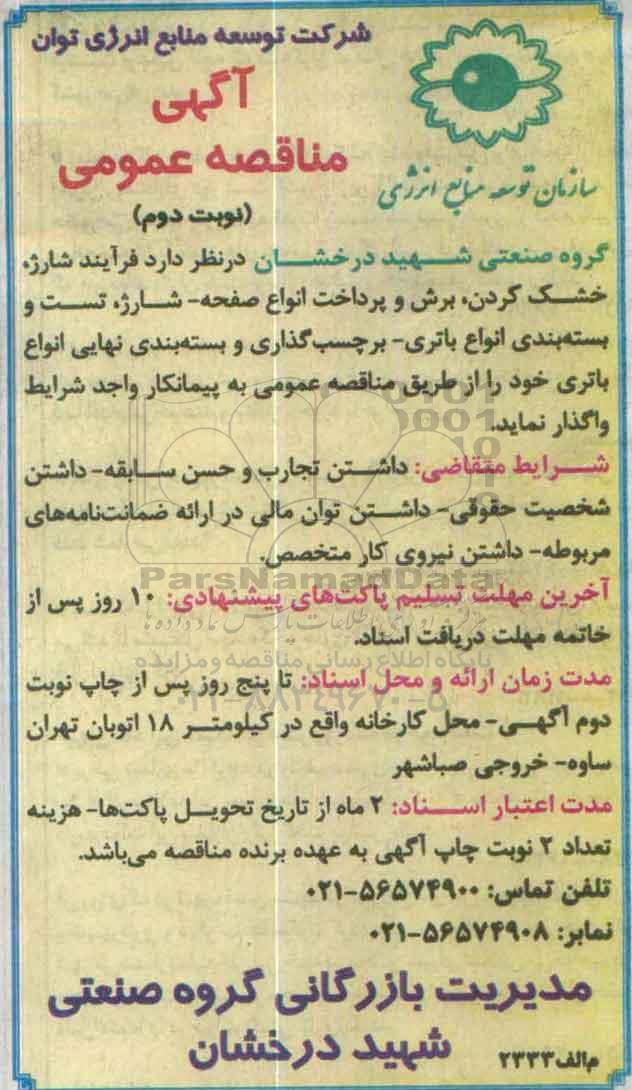 شرکت توسعه منابع انرژی توان
آگهی
مناقصه عمومی
(نوبت دوم)
سازمان توسعه منابع انرژی
گروه صنعتی شهید درخشان درنظر دارد فرآیند شارژ،
خشک کردن، برش و پرداخت انواع صفحه- شارژ، تست و
بسته‌بندی انواع باتری- برچسب‌گذاری و بسته‌بندی نهایی انواع
باتری خود را از طریق مناقصه عمومی به پیمانکار واجد شرایط
واگذار نماید.
شرایط متقاضی: داشتن تجارب و حسن سابقه- داشتن
شخصیت حقوقی- داشتن توان مالی در ارائه ضمانت‌نامه‌های
مربوطه- داشتن نیروی کار متخصص.
ParsNamadData
آخرین مهلت تسلیم پاکت‌های پیشنهادی: ۱۰ روز پس از
خاتمه مهلت دریافت اسناد.
پایگاه اطلاع رسانی مناقصه و مزایده
مدت زمان ارائه و محل اسناد: تا پنج روز پس از چاپ نوبت
دوم آگهی- محل کارخانه واقع در کیلومتر ۱۸ اتوبان تهران
ساوه- خروجی صباشهر
مدت اعتبار اسناد: ۲ ماه از تاریخ تحویل پاکت‌ها- هزینه
تعداد ۲ نوبت چاپ آگهی به عهده برنده مناقصه می‌باشد.
تلفن تماس: ۵۶۵۷۴۹۰۰-۰۲۱
نمابر: ۵۶۵۷۴۹۰۸-۰۲۱
مدیریت بازرگانی گروه صنعتی
شهید درخشان
م‌الف۲۳۳۳